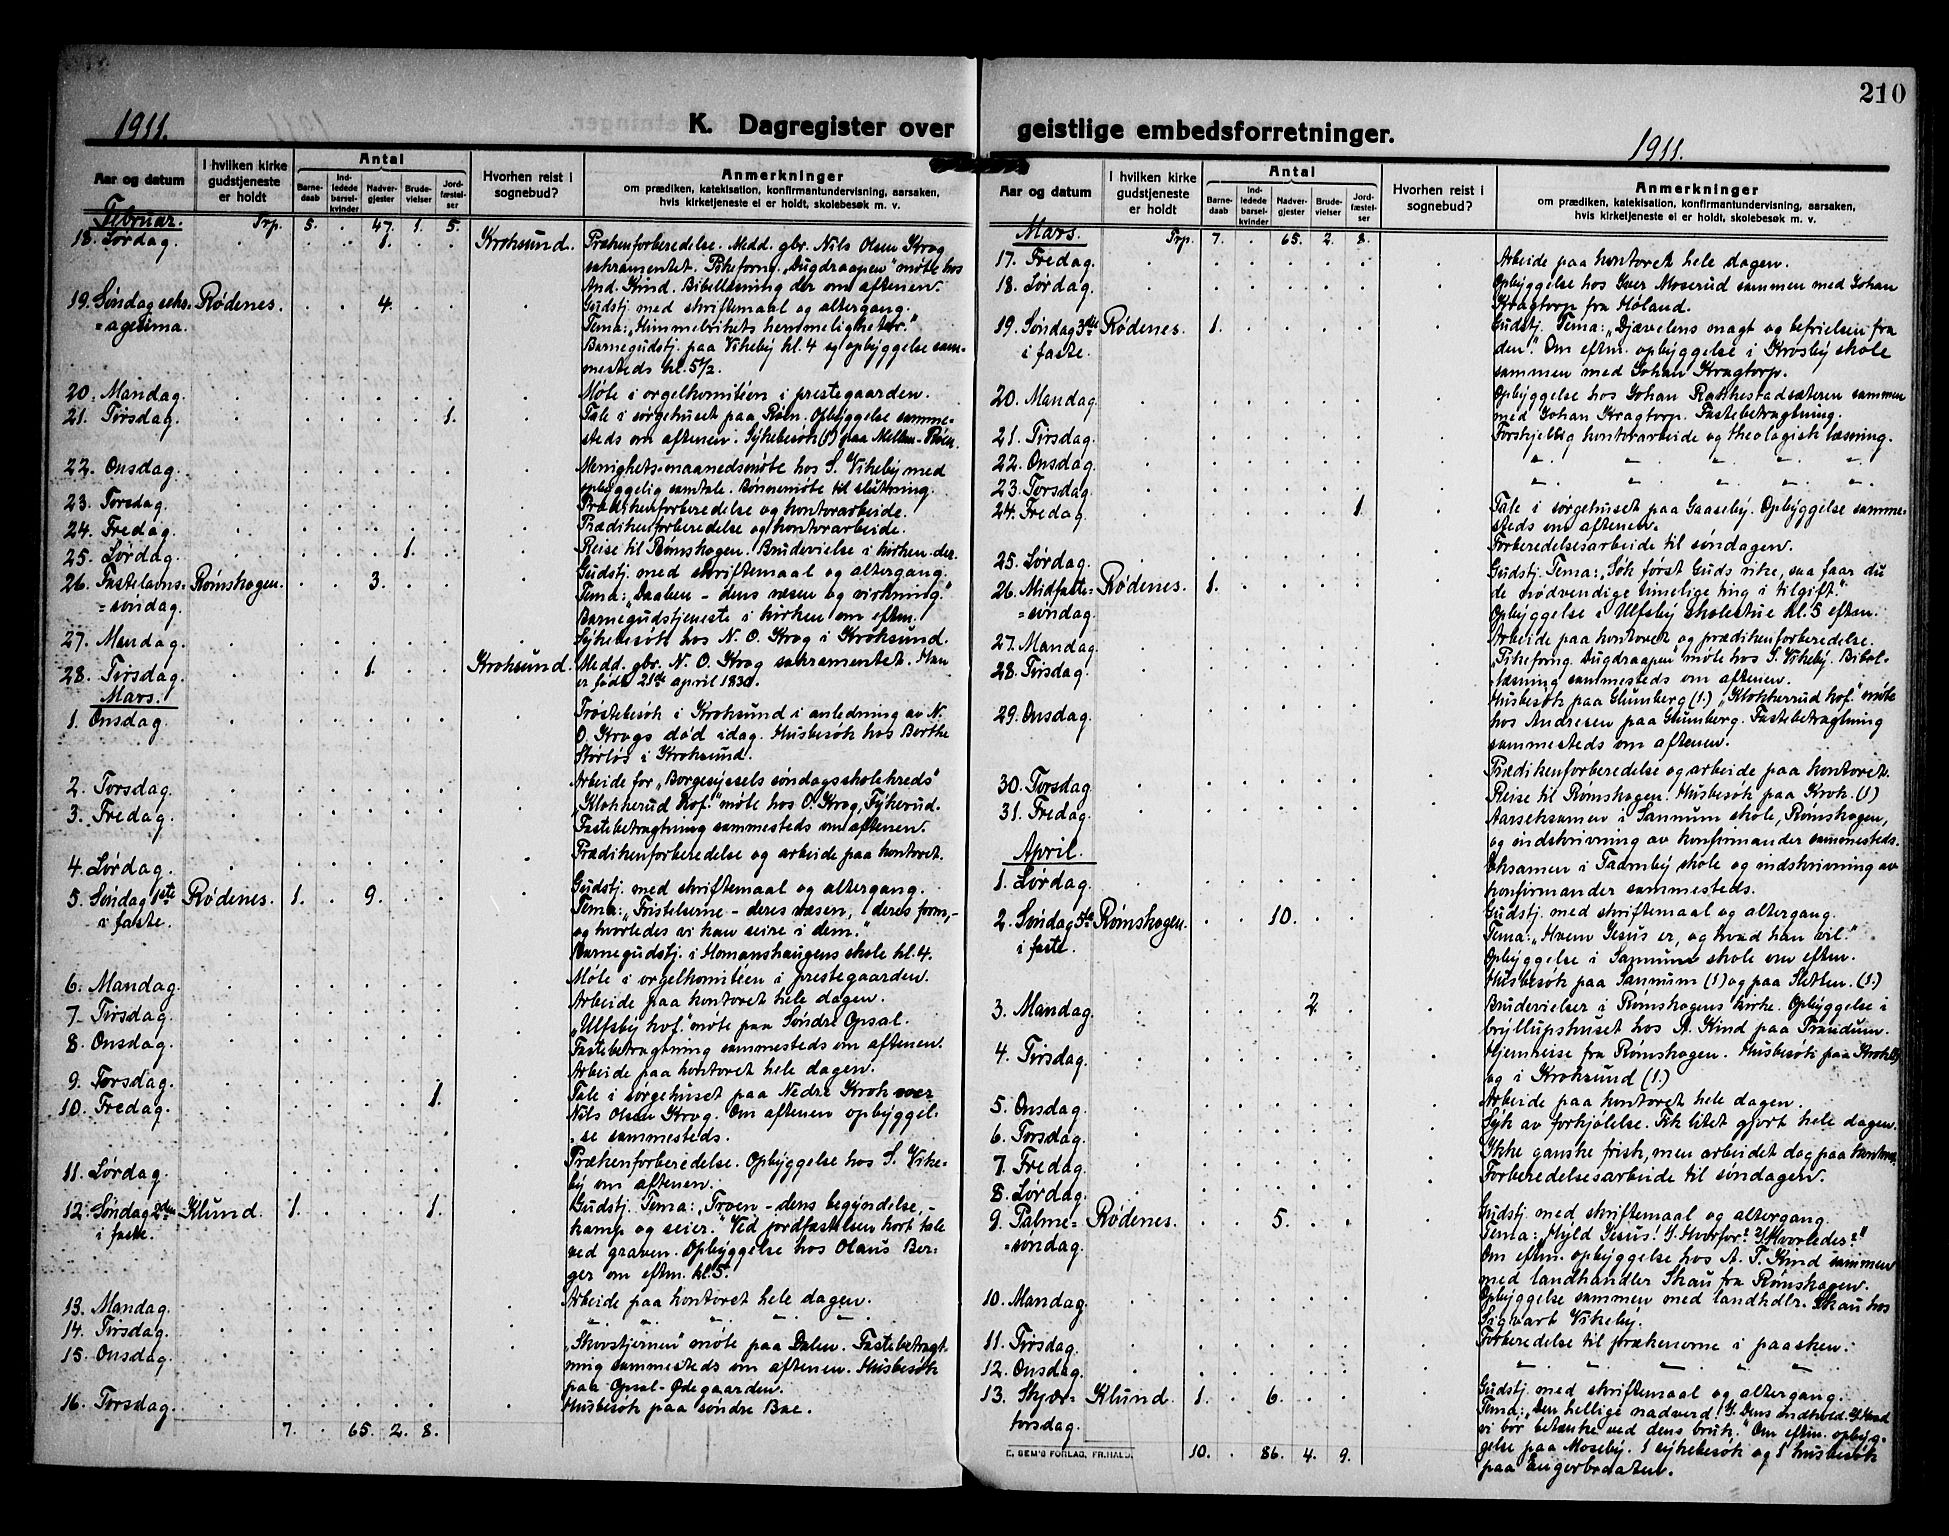 210
1911.
K. Dagregister over geistlige embedsforretninger.
1911.
Aar og datum
I hvilken kirke gudstjeneste er holdt
Antal
Barnedaab
Indledede barselkvinder
Nadvergjester
Brudevielser
Jordfæstelser
Hvorhen reist i sognebud?
Anmerkninger
om prædiken, katekisation, konfirmantundervisning, aarsaken, hvis kirketjeneste ei er holdt, skolebesøk m. v.
Februar. Trp. 5. . 47. 1. 5.
18. Lørdag. . . . 1. . . Kroksund. Prækenforberedelse. Medd. gbr. Nils Olsen Krog
sakramentet. Pikeforng. „Dugdraapen" møte hos
And. Kind. Bibellesning der om aftenen.
19. Søndag seks- Rødenes. . . 4. . . Gudstj. med skriftemaal og altergang.
=agesima. Tema: „Himmerikets hemmeligheter."
Barnegudstj. paa Vikeby kl. 4 og opbyggelse sam-
mesteds kl. 5½.
20. Mandag. Møte i orgelkomitéen i prestegaarden.
21. Tirsdag. 1. Tale i sørgehuset paa Røen. Opbyggelse samme-
steds om aftenen. Sykebesøk (1) paa Mellem-Røen.
22. Onsdag. Menighets-maanedsmøte hos S. Vikeby med
opbyggelig samtale. Bønnemøte til slutning.
23. Torsdag. Prædikenforberedelse og kontorarbeide.
24. Fredag. Prædikenforberedelse og kontorarbeide.
25. Lørdag. 1. Reise til Rømskogen. Brudevielse i kirken der.
26. Fastelavns= Rømskogen. . . 3. . . Gudstj. med skriftemaal og altergang.
=søndag. Tema: „Daaben – dens væsen og virkning."
Barnegudstjeneste i kirken om eftm.
27. Mandag. Sykebesøk hos N. O. Krog i Kroksund.
28. Tirsdag. 1. Kroksund. Medd. gbr. N. O. Krog sakramentet. Han
er født 21de april 1830.
Mars.
1. Onsdag. Trøstebesøk i Kroksund i anledning av N.
O. Krogs død idag. Husbesøk hos Berthe
Størløs i Kroksund.
2. Torsdag. Arbeide for „Borgesyssels søndagsskolekreds"
3. Fredag. „Klokkerud Hof." møte hos O. Krog, Fykerud.
Fastebetragtning sammesteds om aftenen.
4. Lørdag. Prædikenforberedelse og arbeide paa kontoret.
5. Søndag 1ste Rødenes. 1. . 9. . . Gudstj. med skriftemaal og altergang.
i faste. Tema: „Fristelserne – deres væsen, deres form,–
og hvorledes vi kan seire i dem."
Barnegudstj. i Homanshaugens skole kl. 4.
6. Mandag. Møte i orgelkomitéen i prestegaarden.
7. Tirsdag. Arbeide paa kontoret hele dagen.
8. Onsdag. „Ulfsby hof." møte paa Søndre Opsal.
Fastebetragtning sammesteds om aftenen.
9. Torsdag. Arbeide paa kontoret hele dagen.
10. Fredag. 1. Tale i sørgehuset paa Nedre Krok over
Nils Olsen Krog. Om aftenen opbyggel-
=se sammesteds.
11. Lørdag. Prækenforberedelse. Opbyggelse hos S. Vike-
by om aftenen.
12. Søndag 2den Klund. 1. . . . 1. Gudstj. Tema: „Troen – dens begyndelse,–
i faste. kamp og seier." Ved jordfæstelsen kort tale
ved graven. Opbyggelse hos Olaus Ber-
ger om eftm. kl. 5.
13. Mandag. Arbeide paa kontoret hele dagen.
14. Tirsdag. „ „ „ „
15. Onsdag. „Skovstjernen" møte paa Dalen. Fastebetragt-
ning sammesteds om aftenen. Husbesøk
paa Opsal-Ødegaarden.
16. Torsdag. Husbesøk paa søndre Bae.
7. . 65. 2. 8.
Aar og datum
I hvilken kirke gudstjeneste er holdt
Antal
Barnedaab
Indledede barselkvinder
Nadvergjester
Brudevielser
Jordfæstelser
Hvorhen reist i sognebud?
Anmerkninger
om prædiken, katekisation, konfirmantundervisning, aarsaken, hvis kirketjeneste ei er holdt, skolebesøk m. v.
Mars. Trp. 7. . 65. 2. 8.
17. Fredag. Arbeide paa kontoret hele dagen.
18. Lørdag. Opbyggelse hos Iver Moserud sammen med Johan
Kragtorp fra Høland.
19. Søndag 3dje Rødenes. 1. Gudstj. Tema: „Djævelens magt og befrielsen fra
i faste. den." Om eftm. opbyggelse i Krosby skole
sammen med Johan Kragtorp.
20. Mandag. Opbyggelse hos Johan Rakkestadsæteren sammen
med Johan Kragtorp. Fastebetragtning.
21. Tirsdag. Forskjellig kontorarbeide og theologisk læsning.
22. Onsdag. „ „ „ „ „
23. Torsdag. „ „ „ „ „
24. Fredag. 1. Tale i sørgehuset paa Gaaseby. Opbyggelse samme-
steds om aftenen.
25. Lørdag. Forberedelsesarbeide til søndagen.
26. Midfaste= Rødenes. 1. Gudstj. Tema: „Søk først Guds rike, saa faar du
=søndag. de nødvendige timelige ting i tilgift."
Opbyggelse i Ulfsby skolestue kl. 5 eftm.
27. Mandag. Arbeide paa kontoret og prædikenforberedelse.
28. Tirsdag. „Pikeforng. Dugdraapen" møte hos S. Vikeby. Bibel-
læsning sammesteds om aftenen.
29. Onsdag. Husbesøk paa Glumberg (1.) „Klokkerud hof." møte
hos Andresen paa Glumberg. Fastebetragtning
sammesteds om aftenen.
30. Torsdag. Prædikenforberedelse og arbeide paa kontoret.
31. Fredag. Reise til Rømskogen. Husbesøk paa Krok. (1)
Aarseksamen i Sannum skole, Rømskogen,
og indskrivning av konfirmander sammesteds.
April.
1. Lørdag. Eksamen i Tadmby skole og indskrivning av
konfirmander sammesteds.
2. Søndag 5te Rømskogen. . . 10. . . Gudstj. med skriftemaal og altergang.
i faste. Tema: „Hvem Jesus er, og hvad han vil."
Opbyggelse i Sannum skole om eftm.
Husbesøk paa Sannum (1) og paa Sletten. (1.)
3. Mandag. 2. Brudevielser i Rømskogens kirke. Opbyggelse i
bryllupshuset hos A. Kind paa Trandum.
4. Tirsdag. Hjemreise fra Rømskogen. Husbesøk paa Krokby
og i Kroksund (1.)
5. Onsdag. Arbeide paa kontoret hele dagen.
6. Torsdag. Syk av forkjølelse. Fik litet gjort hele dagen.
7. Fredag. Ikke ganske frisk, men arbeidet dog paa kontoret.
8. Lørdag. Forberedelsesarbeide til søndagen.
9. Palme= Rødenes. . . 5. . . Gudstj. med skriftemaal og altergang.
=søndag. Tema: „Hyld Jesus! 1. Hvorfor? 2. Hvorledes?"
Om eftm. opbyggelse hos A. T. Kind sammen
med landhandler Skau fra Rømskogen.
10. Mandag. Opbyggelse sammen med landhdlr. Skau hos
Sigvart Vikeby.
11. Tirsdag. Forberedelse til prækenerne i paasken.
12. Onsdag. „ „ „ „ „
13. Skjær- Klund. 1. . 6. . . Gudstj. med skriftemaal og altergang.
torsdag. Tema: „Den hellige nadverd! 1. Dens indhold. 2. Hvad
vi bør betænke ved dens bruk." Om eftm. opbyg-
gelse paa Moseby. 1 sykebesøk og 1 husbesøk
paa Engerbraaten.
E. SEM'S FORLAG, FR.HALD. 10. . 86. 4. 9.